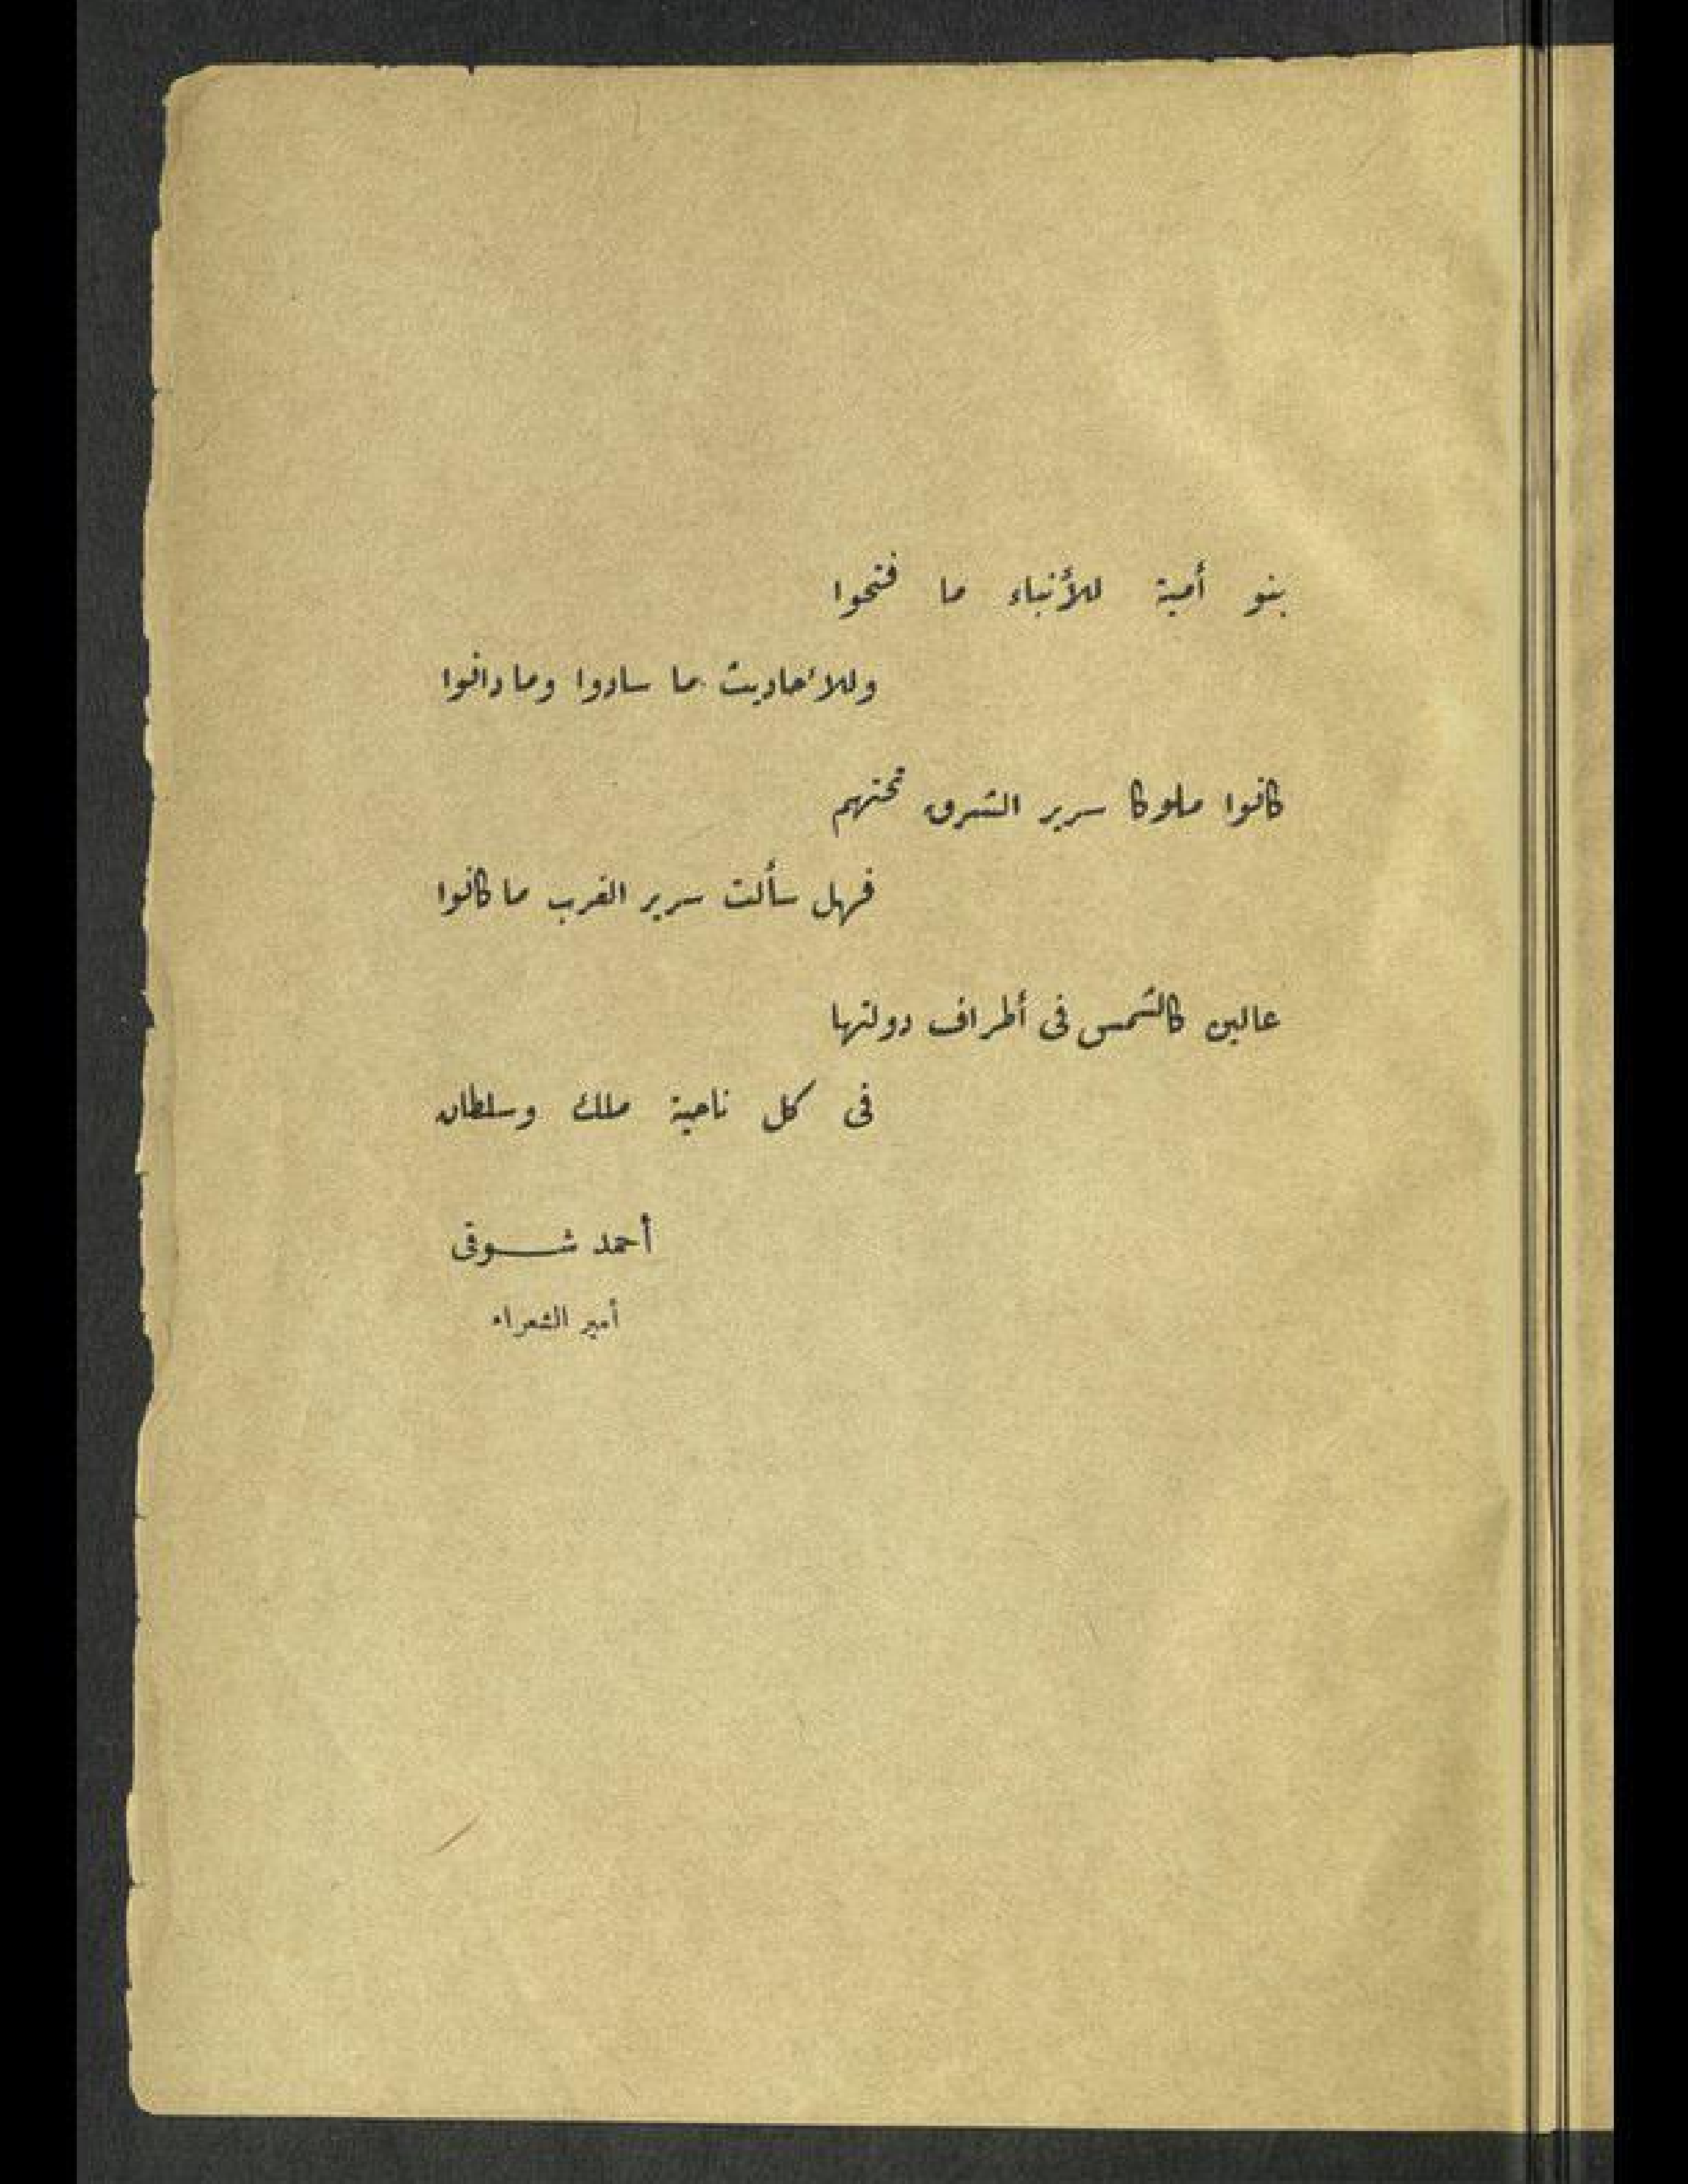 بنو أمية للأنباء ما فتحوا
وللأحاديث ما سادوا وما دانوا
كانوا ملوكا سرير الشرق تحتهم
فهل سألت سرير الغرب ما كانوا
عالين كالشمس فى أطراف دولتها
فى كل ناحية ملك وسلطان
أحمد شوقى
أمير الشعراء